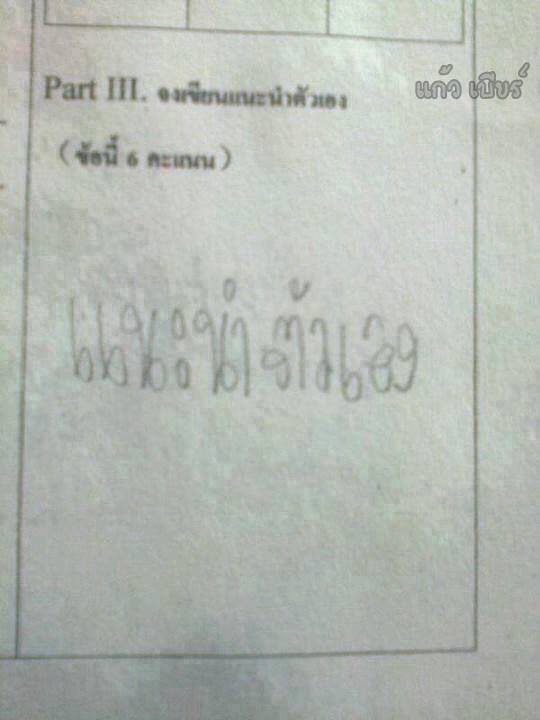 แก้ว เบียร์
Part III. จงเขียนแนะนำตัวเอง
(ข้อนี้ 6 คะแนน)
แนะนำตัวเอง